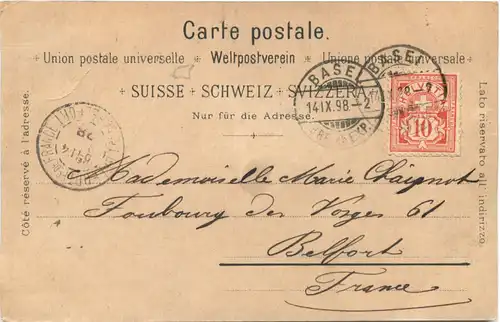 Carte postale.
Union postale universelle Weltpostverein Unione postale universale
SUISSE SCHWEIZ SVIZZERA
Nur für die Adresse.
Côté réservé à l'adresse.
Lato riservato all' indirizzo.
BASEL
14.IX.98.-2
BASEL
10
Mademoiselle Marie Claignot
Faubourg des Vosges 61
Belfort
France